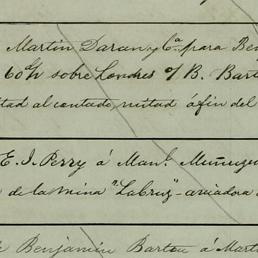 Martin Daran y Ca. para Ben
60 d/v sobre Londres o/ B. Bart
mitad al contado, mitad á fin del
E. J. Perry á Manl. Muñuzu
de la mina "La Cruz" - aviadora
Benjamin Barton á Mart